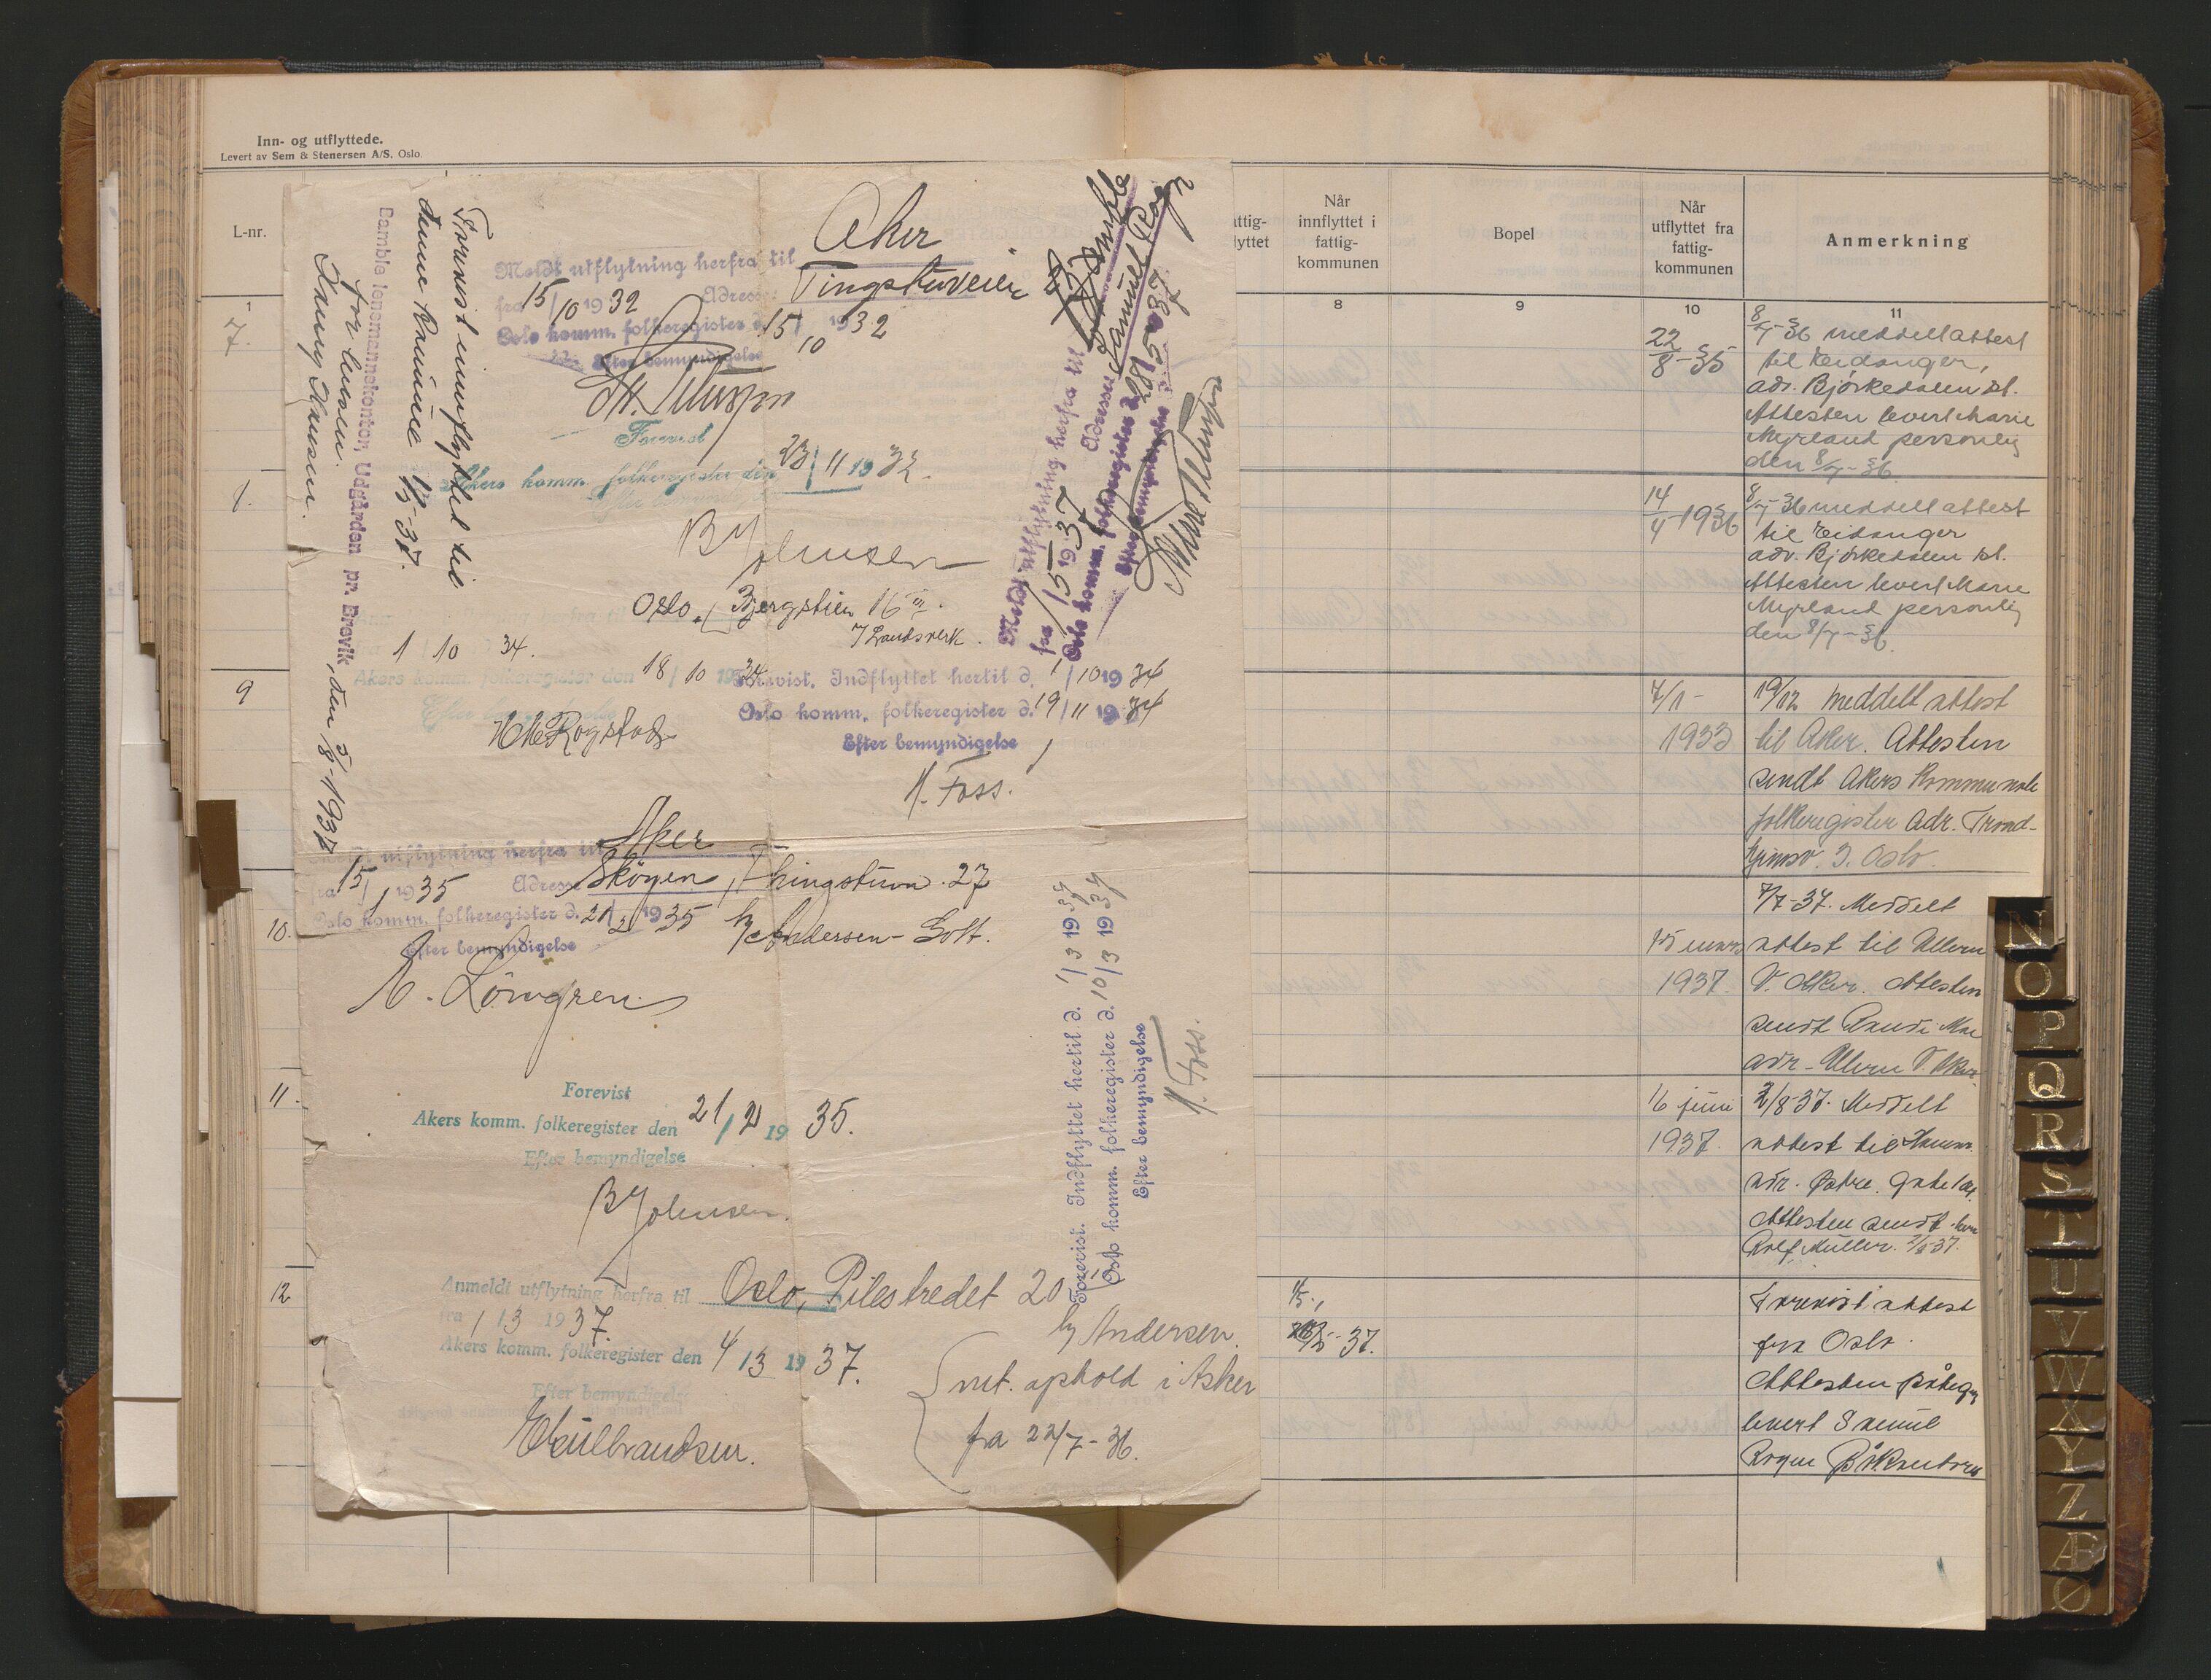 Inn- og utflyttede.
Levert av Sem & Stenersen A/S. Oslo.
L-nr.
1
7.
9
10.
11.
12
Forevist innflyttet til
denne kommune 15-37.
Bambla lensmannskontor, Udgården pr. Brevik, den 3/8-1937
for lensm.
Hansen.
Meldt utflytning herfra til Aker
fra 15/10 1932 Adresse: Tingstuveien
Oslo komm. folkeregister d. 15/10 1932
Efter bemyndigelse
Forevist
Akers komm. folkeregister den 23/11 1932.
B Johnsen
Oslo, Bergstien 16 III.
Landsverk.
1 10 34.
Akers komm. folkeregister den 18/10 1934
Rogstad
Forevist. Indflyttet hertil d. 1/10 19 34
Oslo komm. folkeregister d. 19/11 19 34
Efter bemyndigelse
N. Foss.
Meldt utflytning herfra til Bamble
fra 1/5 1937 Adresse: Samuel Rogn
Oslo komm. folkeregister d. 28/5 37
Efter bemyndigelse
Meldt utflytning herfra til Aker
fra 15/1 1935 Adresse Skøyen, Thingstuv. 27
Oslo komm. folkeregister d. 21/2 1935 h/ Andersen-
Efter bemyndigelse
Löwgren.
Forevist
Akers komm. folkeregister den 21/2 19 35.
Efter bemyndigelse
B Johnsen.
Forevist. Indflyttet hertil d. 1/3 1937
Oslo komm. folkeregister d. 10/3 1937
Efter bemyndigelse
N. Foss.
Anmeldt utflytning herfra til Oslo, Pilestredet 20
fra 1/3 1937. h/ Andersen.
Akers komm. folkeregister den 4/3 19 37.
Efter bemyndigelse
Gulbrandsen.
mt. ophold i Asker
fra 22/7-36.
attig-
lyttet
Når
innflyttet i
fattig-
kommunen
Bopel
Når
utflyttet fra
fattig-
kommunen
Anmerkning
8
9
10
11
22/8-35
8/7-36 meddelt attest
til Eidanger,
adr. Bjørkedalen st.
Attesten levert Marie
Myrland personlig
den 8/7-36
14/4-1936
8/7-36 meddelt attest
til Eidanger
adr. Bjørkedalen st.
Attesten levert Marie
Myrland personlig
den 8/7-36.
7/1-
1933
19/12 meddelt attest
til Aker. Attesten
sendt Akers Kommunale
folkeregister Adr. Trond-
hjemsv. 3. Oslo.
15 mars
1937.
7/7-37. Meddelt
attest til Ullern
V. Aker. Attesten
sendt Randi Moe
adr. Ullern V. Aker.
16 juni
1937.
2/8-37. Meddelt
attest til Hamar.
adr. Østre. gate 101.
Attesten sendt herr
Rolf Müller. 2/8-37.
1/5.,
37.
Forevist attest
fra Oslo.
Attesten påtegn
levert Samuel
Rogn
N
O
P
Q
R
S
T
U
V
W
X
Y
Z
Æ
Ø